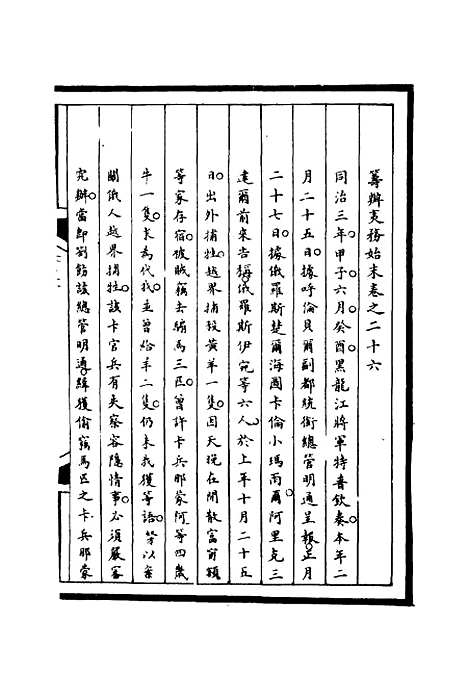 籌辦夷務始末卷之二十六
同治三年甲子六月癸酉黑龍江將軍特普欽奏本年二
月二十五日據呼倫貝爾副都統銜總管明通呈報正月
二十七日據俄羅斯楚爾海圖卡倫小瑪雨爾阿里克三
達爾前來告稱俄羅斯伊宛等六人於上年十月二十五
日出外捕牲越界捕殺黃羊一隻因天晚在閒散富甯額
等家存宿被賊竊去騸馬三匹曾許卡兵那蒙阿等四歲
牛一隻求為代找並曾給羊二隻仍未找獲等語等以案
關俄人越界捕牲該卡官兵有失察容隱情事必須嚴審
究辦當即劄飭該總管明通緝獲偷竊馬匹之卡兵那蒙